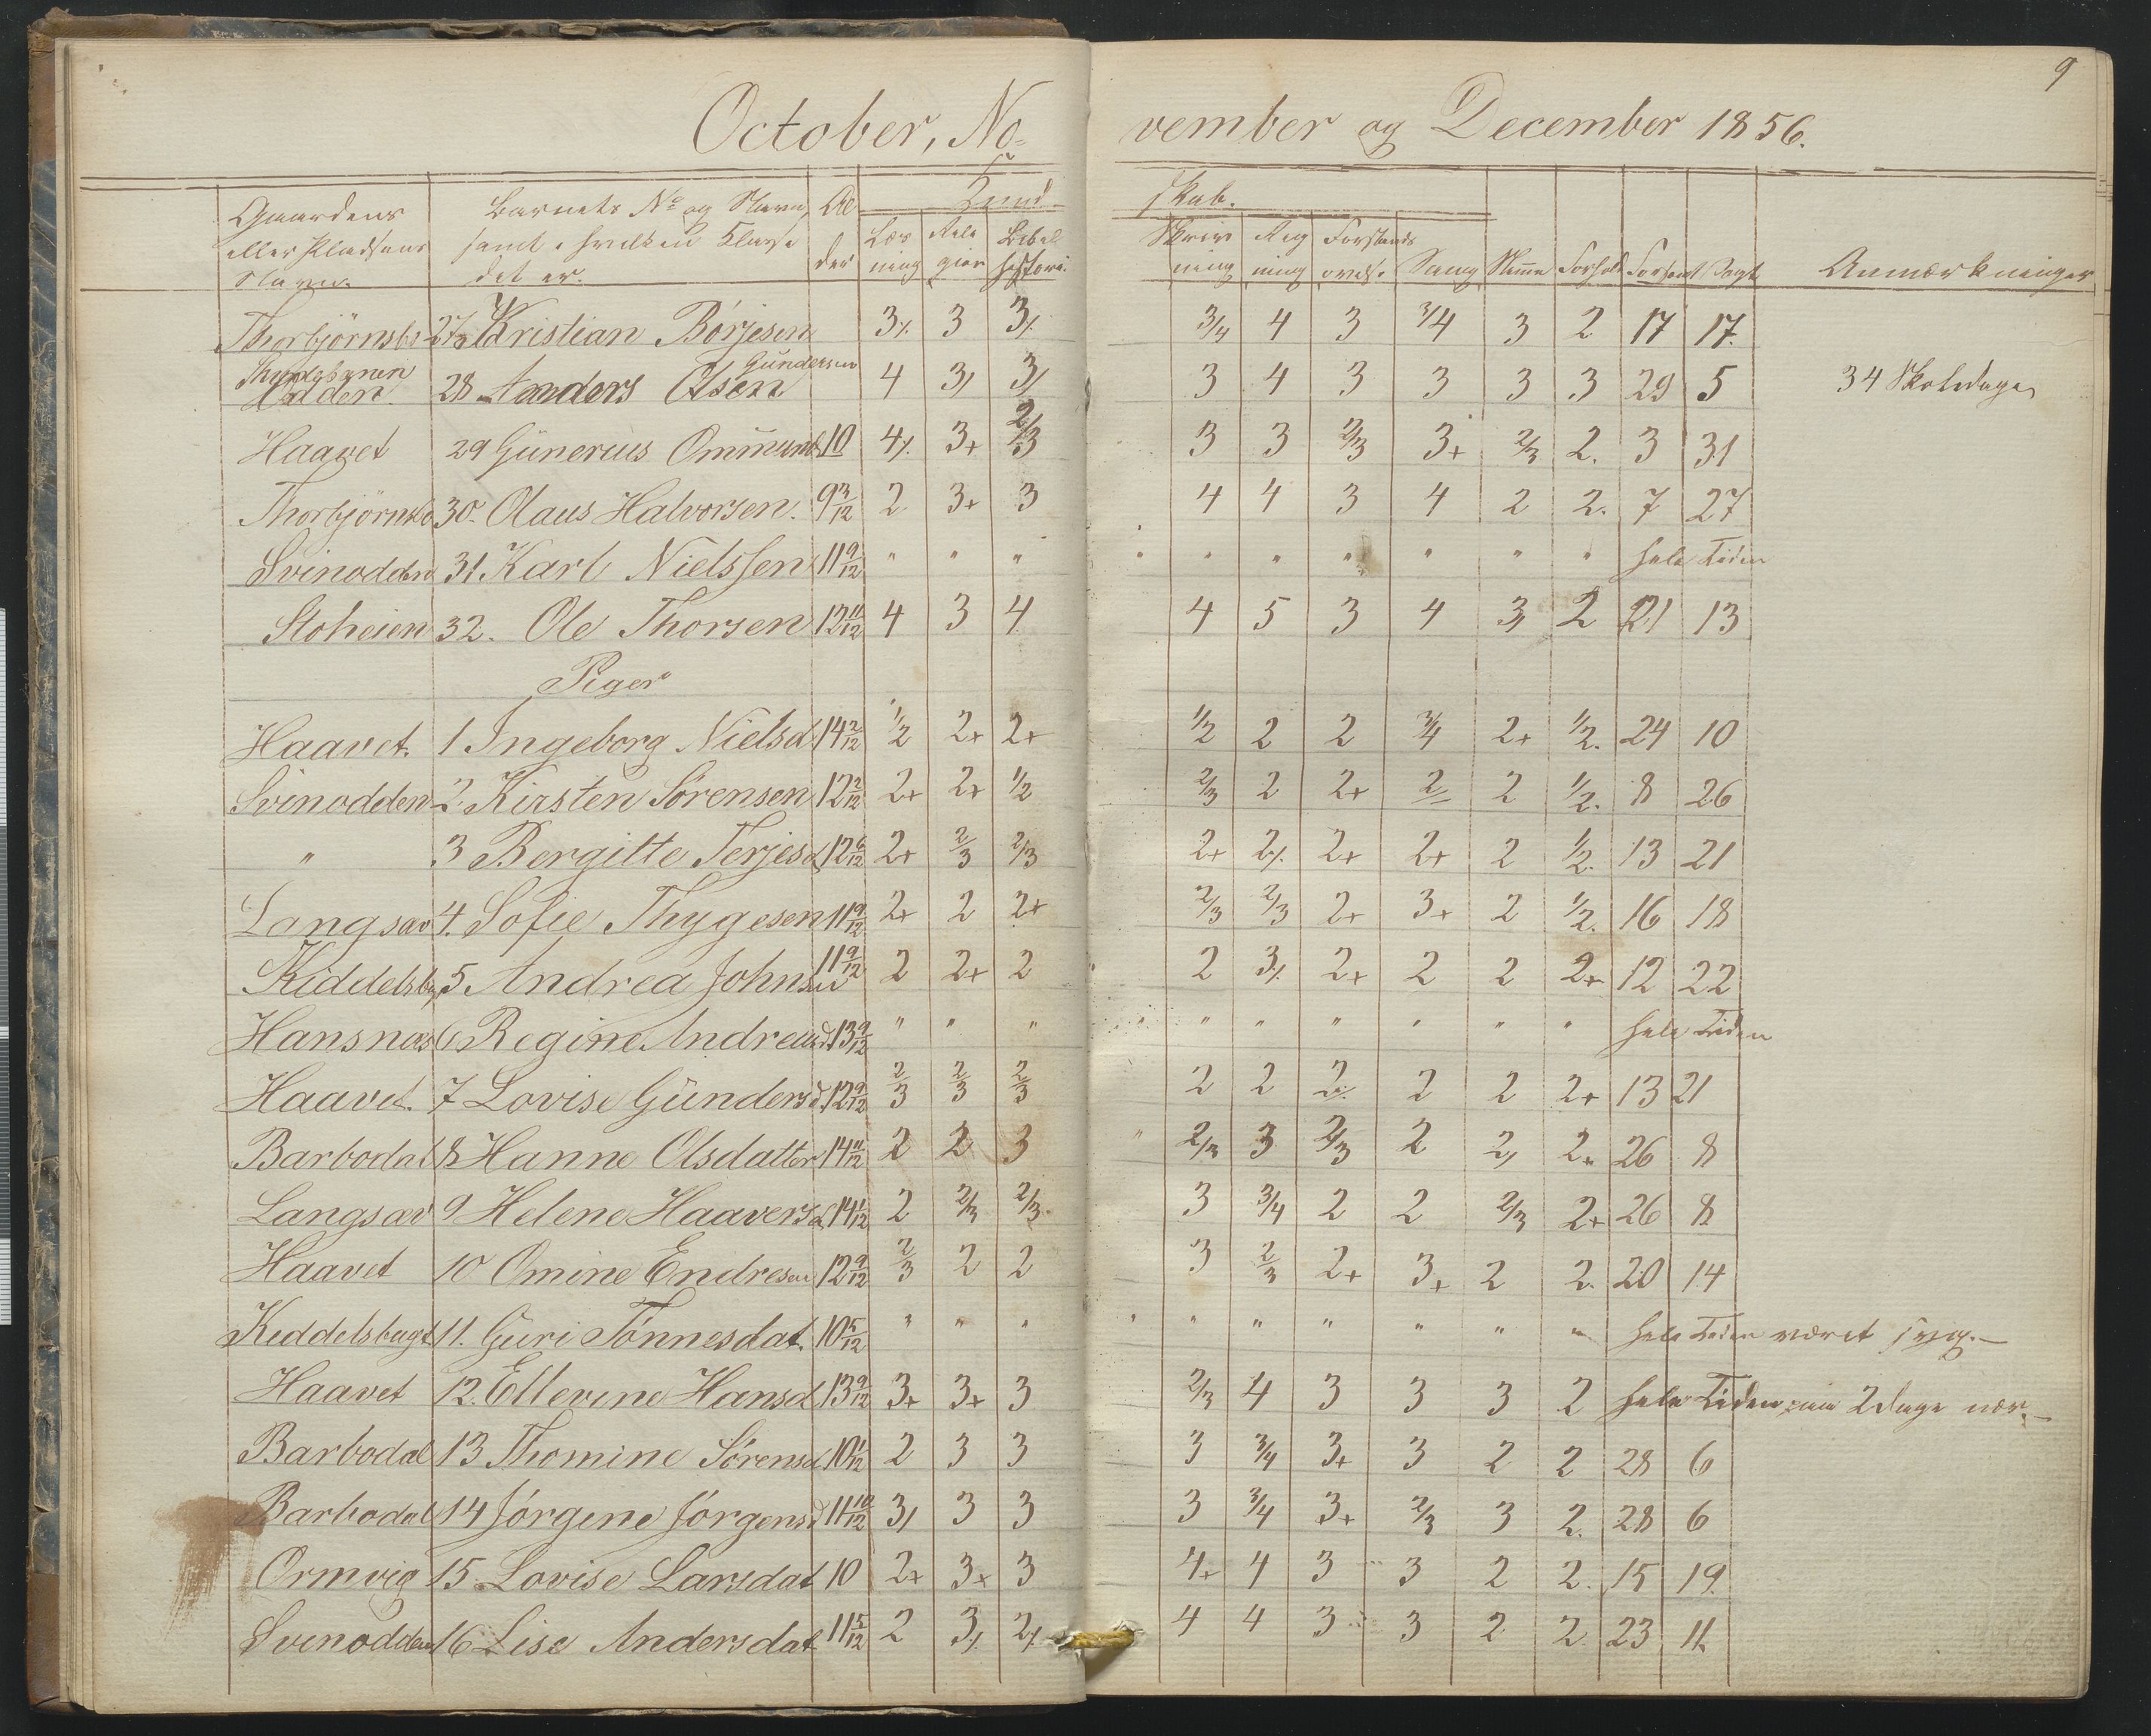 9
October, No- vember og December 1856.
Gaardens eller Pladsens Navn. Barnets No og Navn, samt i hvilken Klasse det er. Al der Kund skab.
Læs ning Reli gion Bibel historie Skriv ning Reg ning Forstands øvelse Sang Forhold Forsømt Søgt Anmærkninger
Thorbjörnsbo 27 Kristian Börjesen 3/. 3 3/. 3/4 4 3 3/4 3 2 17 17.
Gundersen
Odden 28 Anders Olsen 4 3/ 3/ 3 4 3 3 3 3 29 5 34 Skoledage
Haavet 29 Gunerius Ommunds 10 4/. 3+ 2/3 3 3 2/3 3+ 2/3 2. 3 31
Thorbjörnsbo 30. Olaus Halvorsen. 9 3/12 2 3+ 3 4 4 3 4 2 2. 7 27
Svinodden 31. Karl Nielssen 11 9/12 " " " " " " " " " hele Tiden
Stoheien 32. Ole Thorsen 12 11/12 4 3 4 4 5 3 4 3/ 2 21 13
Piger
Haavet. 1 Ingeborg Nielsd 14 2/12 1/2 2+ 2+ 1/2 2 2 3/4 2+ 1/2. 24 10
Svinodden 2. Kirsten Sörensen 12 2/12 2+ 2+ 1/2 2/3 2 2+ 2 2 1/2. 8 26
" 3 Bergitte Terjesd 12 6/12 2+ 2/3 2/3 2+ 2/. 2+ 2+ 2 1/2. 13 21
Langsæv 4. Sofie Thygesen 11 9/12 2+ 2 2+ 2/3 2/3 2+ 3+ 2 1/2. 16 18
Kiddelsbu 5 Andrea Johnsen 11 9/12 2 2+ 2 2 3/. 2+ 2 2 2+ 12 22
Hansnæs 6 Regine Andreasd. 13 9/12 " " " " " " " " " hele Tiden
Haavet. 7 Lovise Gundersd. 12 9/12 2/3 2/3 2/3 2 2 2 2 2 2+ 13 21
Barbodal 8 Hanne Olsdatter 14 11/12 2 2 3 2/3 3 2/3 2 2/ 2+ 26 8
Langsæv 9 Helene Haaversd 14 1/12 2 2/3 2/3 3 3/4 2 2 2/3 2+ 26 8
Haavet 10 Omine Endresen 12 9/12 2/3 2 2 3 2/3 2+ 3+ 2 2. 20 14
Kiddelsbugt 11. Guri Tönnesdat. 10 5/12 " " " " " " " " " hele Tiden været syg.
Haavet 12. Ellevine Hansd 13 9/12 3+ 3+ 3 2/3 4 3 3 3 2 hele Tiden, 2 dage nær.
Barbodal 13 Thomine Sörensd 10 1/12 2 3 3 3 3/4 3+ 3 2 2 28 6
Barbodal 14 Jörgine Jörgensd 11 10/12 3/ 3 3 3 3/4 3+ 2/3 3 2. 28 6
Ormvig 15 Lovise Larsdat 10 2+ 3+ 3 4+ 4 3 3 2 2. 15 19.
Svinodden 16 Lise Andersdat 11 5/12 2 3/. 2/. 4 4 3 3 2 2. 23 11.